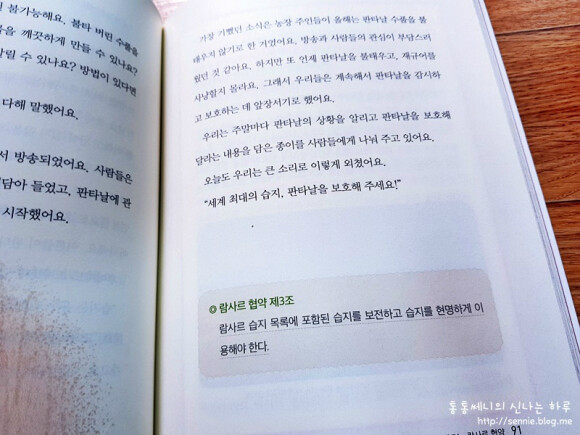 불가능해요. 불타 버린 수풀을
깨끗하게 만들 수 있나요?
릴 수 있나요? 방법이 있다면
다해 말했어요.
서 방송되었어요. 사람들은
담아 들었고, 판타날에 관
시작했어요.
가장 기뻤던 소식은 농장 주인들이 올해는 판타날 수풀을 불
태우지 않기로 한 거였어요. 방송과 사람들의 관심이 부담스러
웠던 것 같아요. 하지만 또 언제 판타날을 불태우고, 재규어를
사냥할지 몰라요. 그래서 우리들은 계속해서 판타날을 감시하
고 보호하는 데 앞장서기로 했어요.
우리는 주말마다 판타날의 상황을 알리고 판타날을 보호해
달라는 내용을 담은 종이를 사람들에게 나눠 주고 있어요.
오늘도 우리는 큰 소리로 이렇게 외쳤어요.
“세계 최대의 습지, 판타날을 보호해 주세요!”
◎ 람사르 협약 제3조
람사르 습지 목록에 포함된 습지를 보전하고 습지를 현명하게 이
용해야 한다.
통통쎄니의 신나는 하루
http://sennie.blog.me
람사르 협약 91